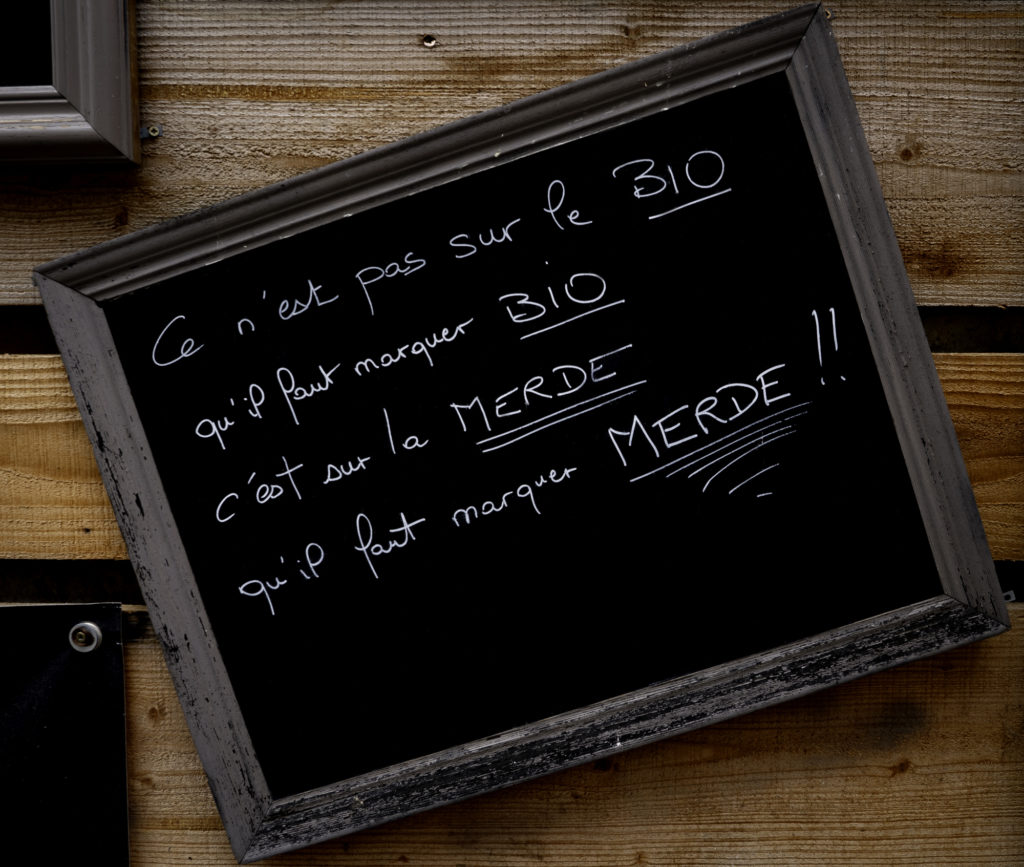 Ce n'est pas sur le BIO
qu'il faut marquer BIO
c'est sur la MERDE
qu'il faut marquer MERDE !!